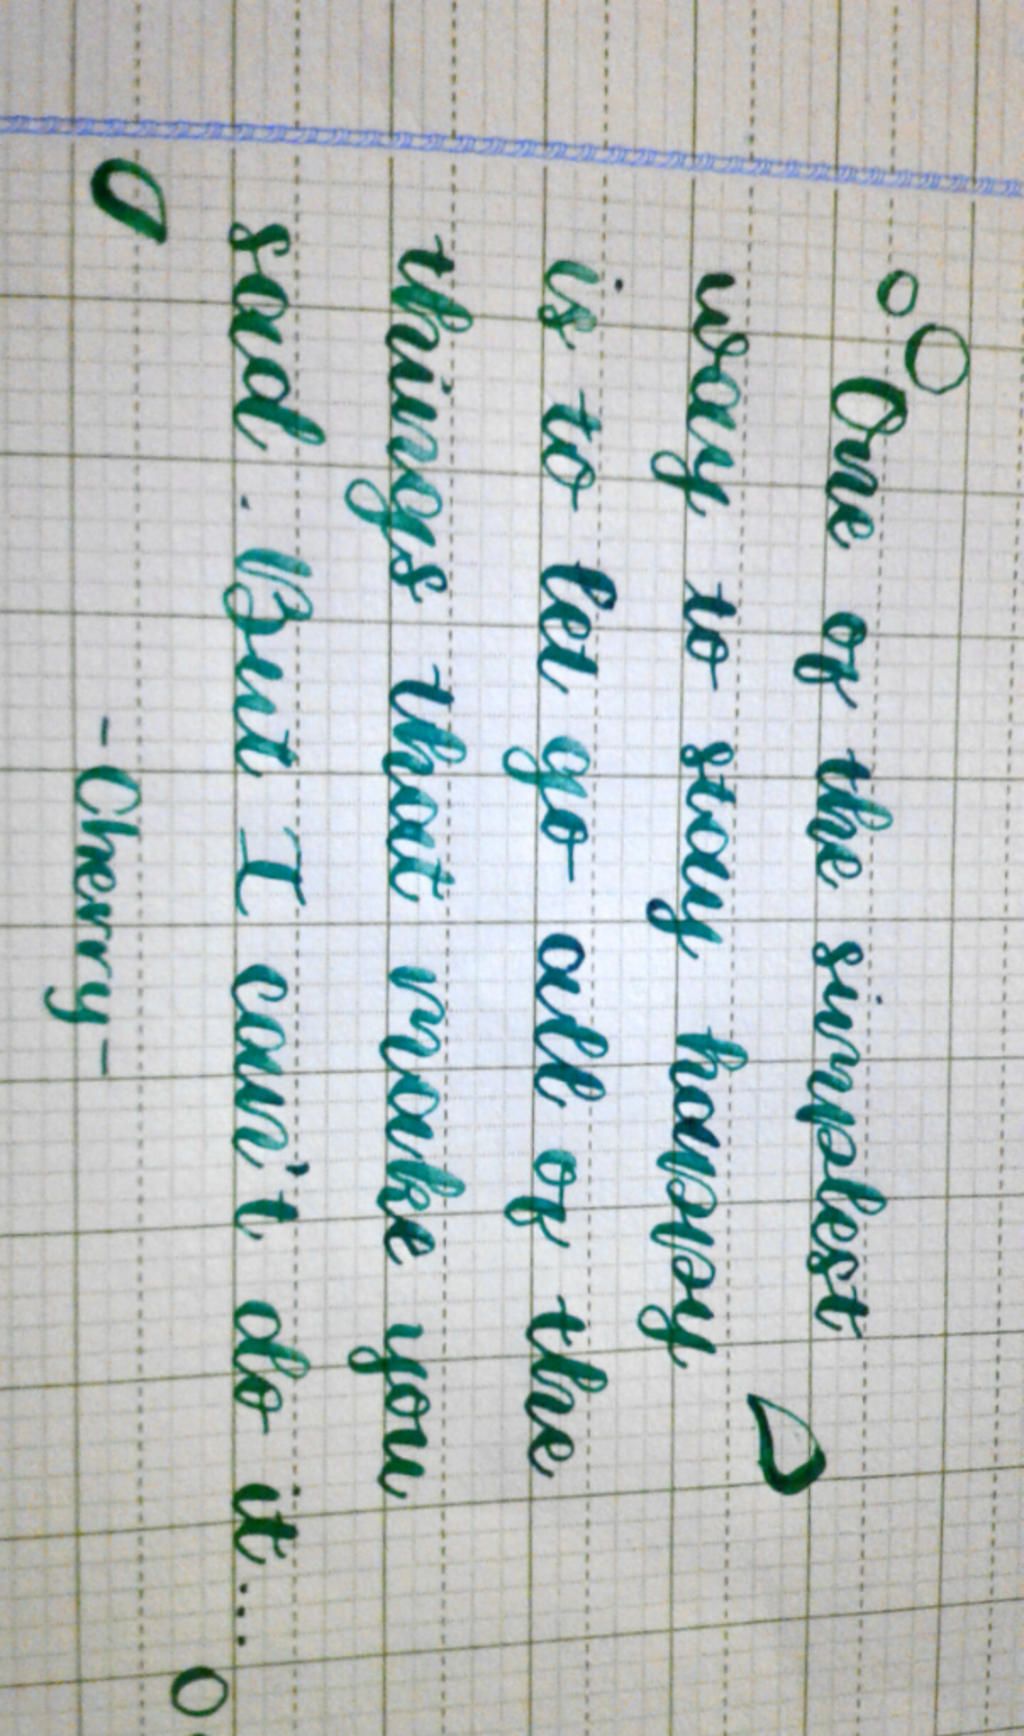 One of the simplest
way to stay happy
is to let go all of the
things that make you
sad. But I can't do it...
- Cherry -